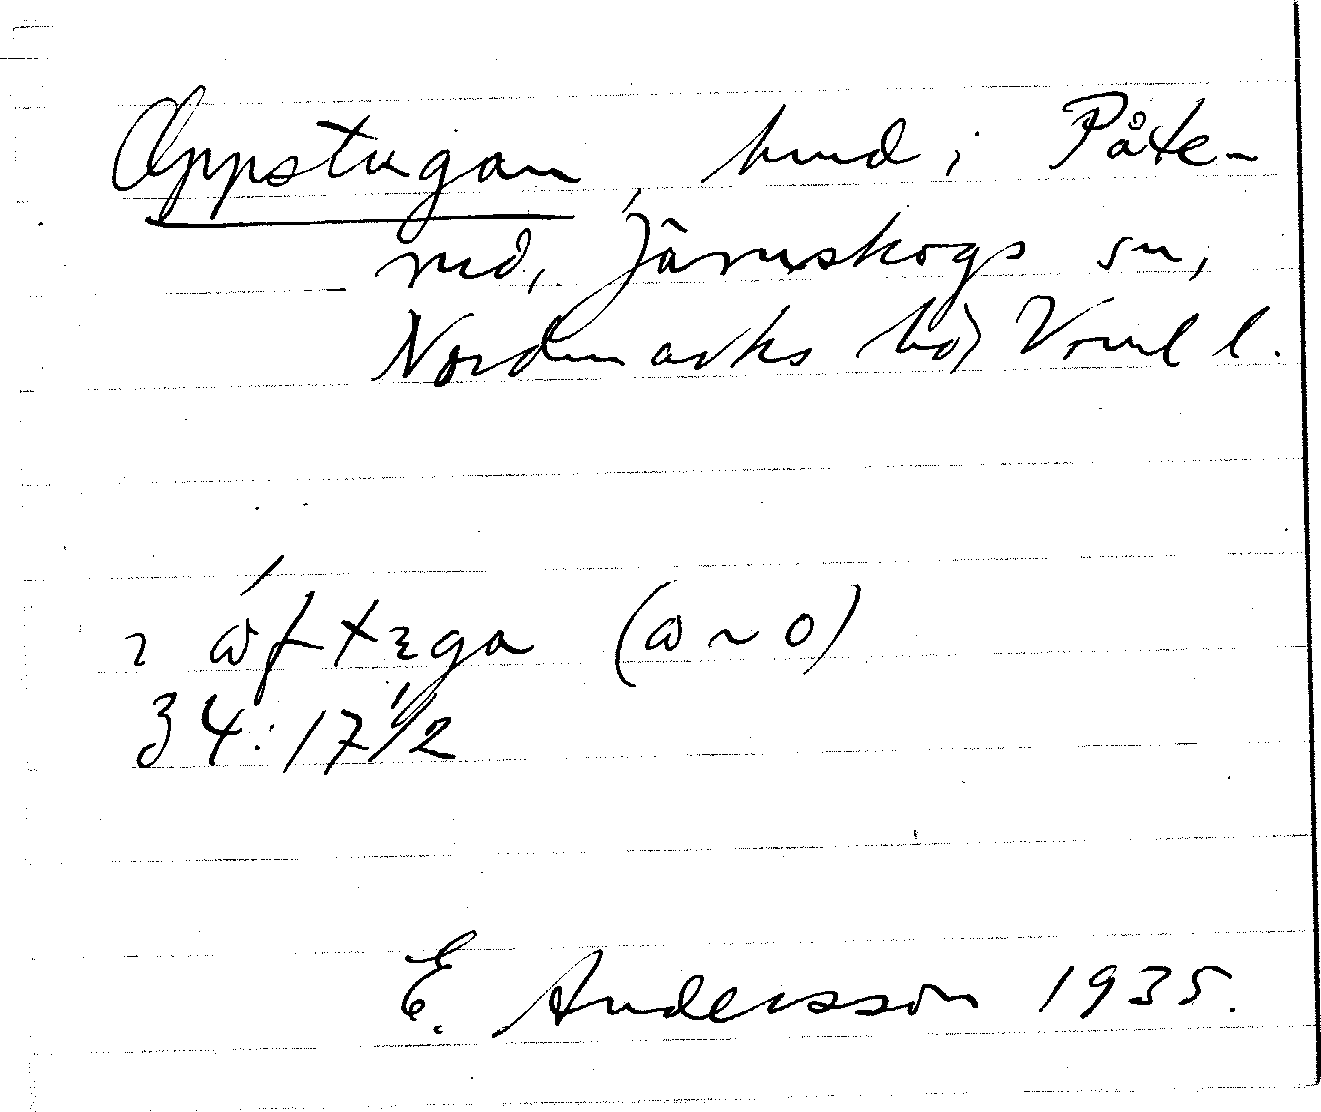 Oppstugan, hmd i Påte-
rud, Järnskogs sn,
Nordmarks hd, Vrml l.
2 (ω ~ o)
34: 17 1/2
E. Andersson 1935.